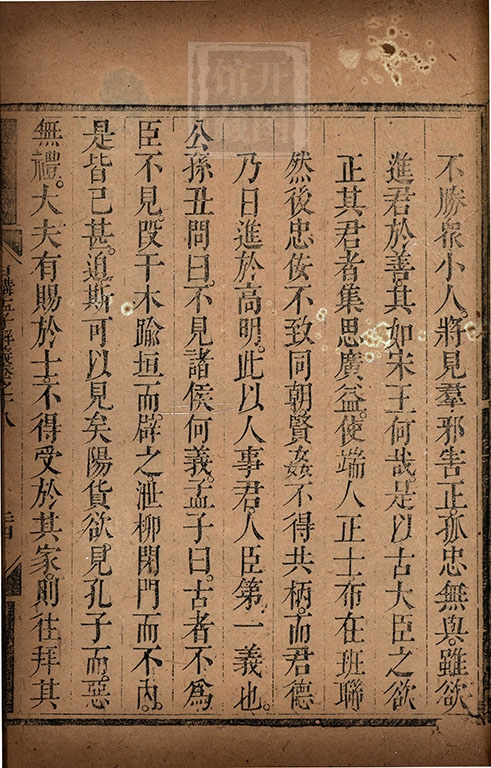 不勝衆小人。將見羣邪害正。孤忠無與。雖欲
進君於善。其如宋王何哉。是以古大臣之欲
正其君者集思廣益。使端人正士布在班聯
然後忠佞不致同朝。賢姦不得共柄。而君德
乃日進於高明。此以人事君人臣第一義也。
公孫丑問曰。不見諸侯何義。孟子曰。古者不爲
臣不見。段干木踰垣而。辟之泄柳閉門而不內。
是皆已甚。迫斯可以見矣陽貨欲見孔子而。惡
無禮。大夫有賜於士。不得受於其家。則往拜其